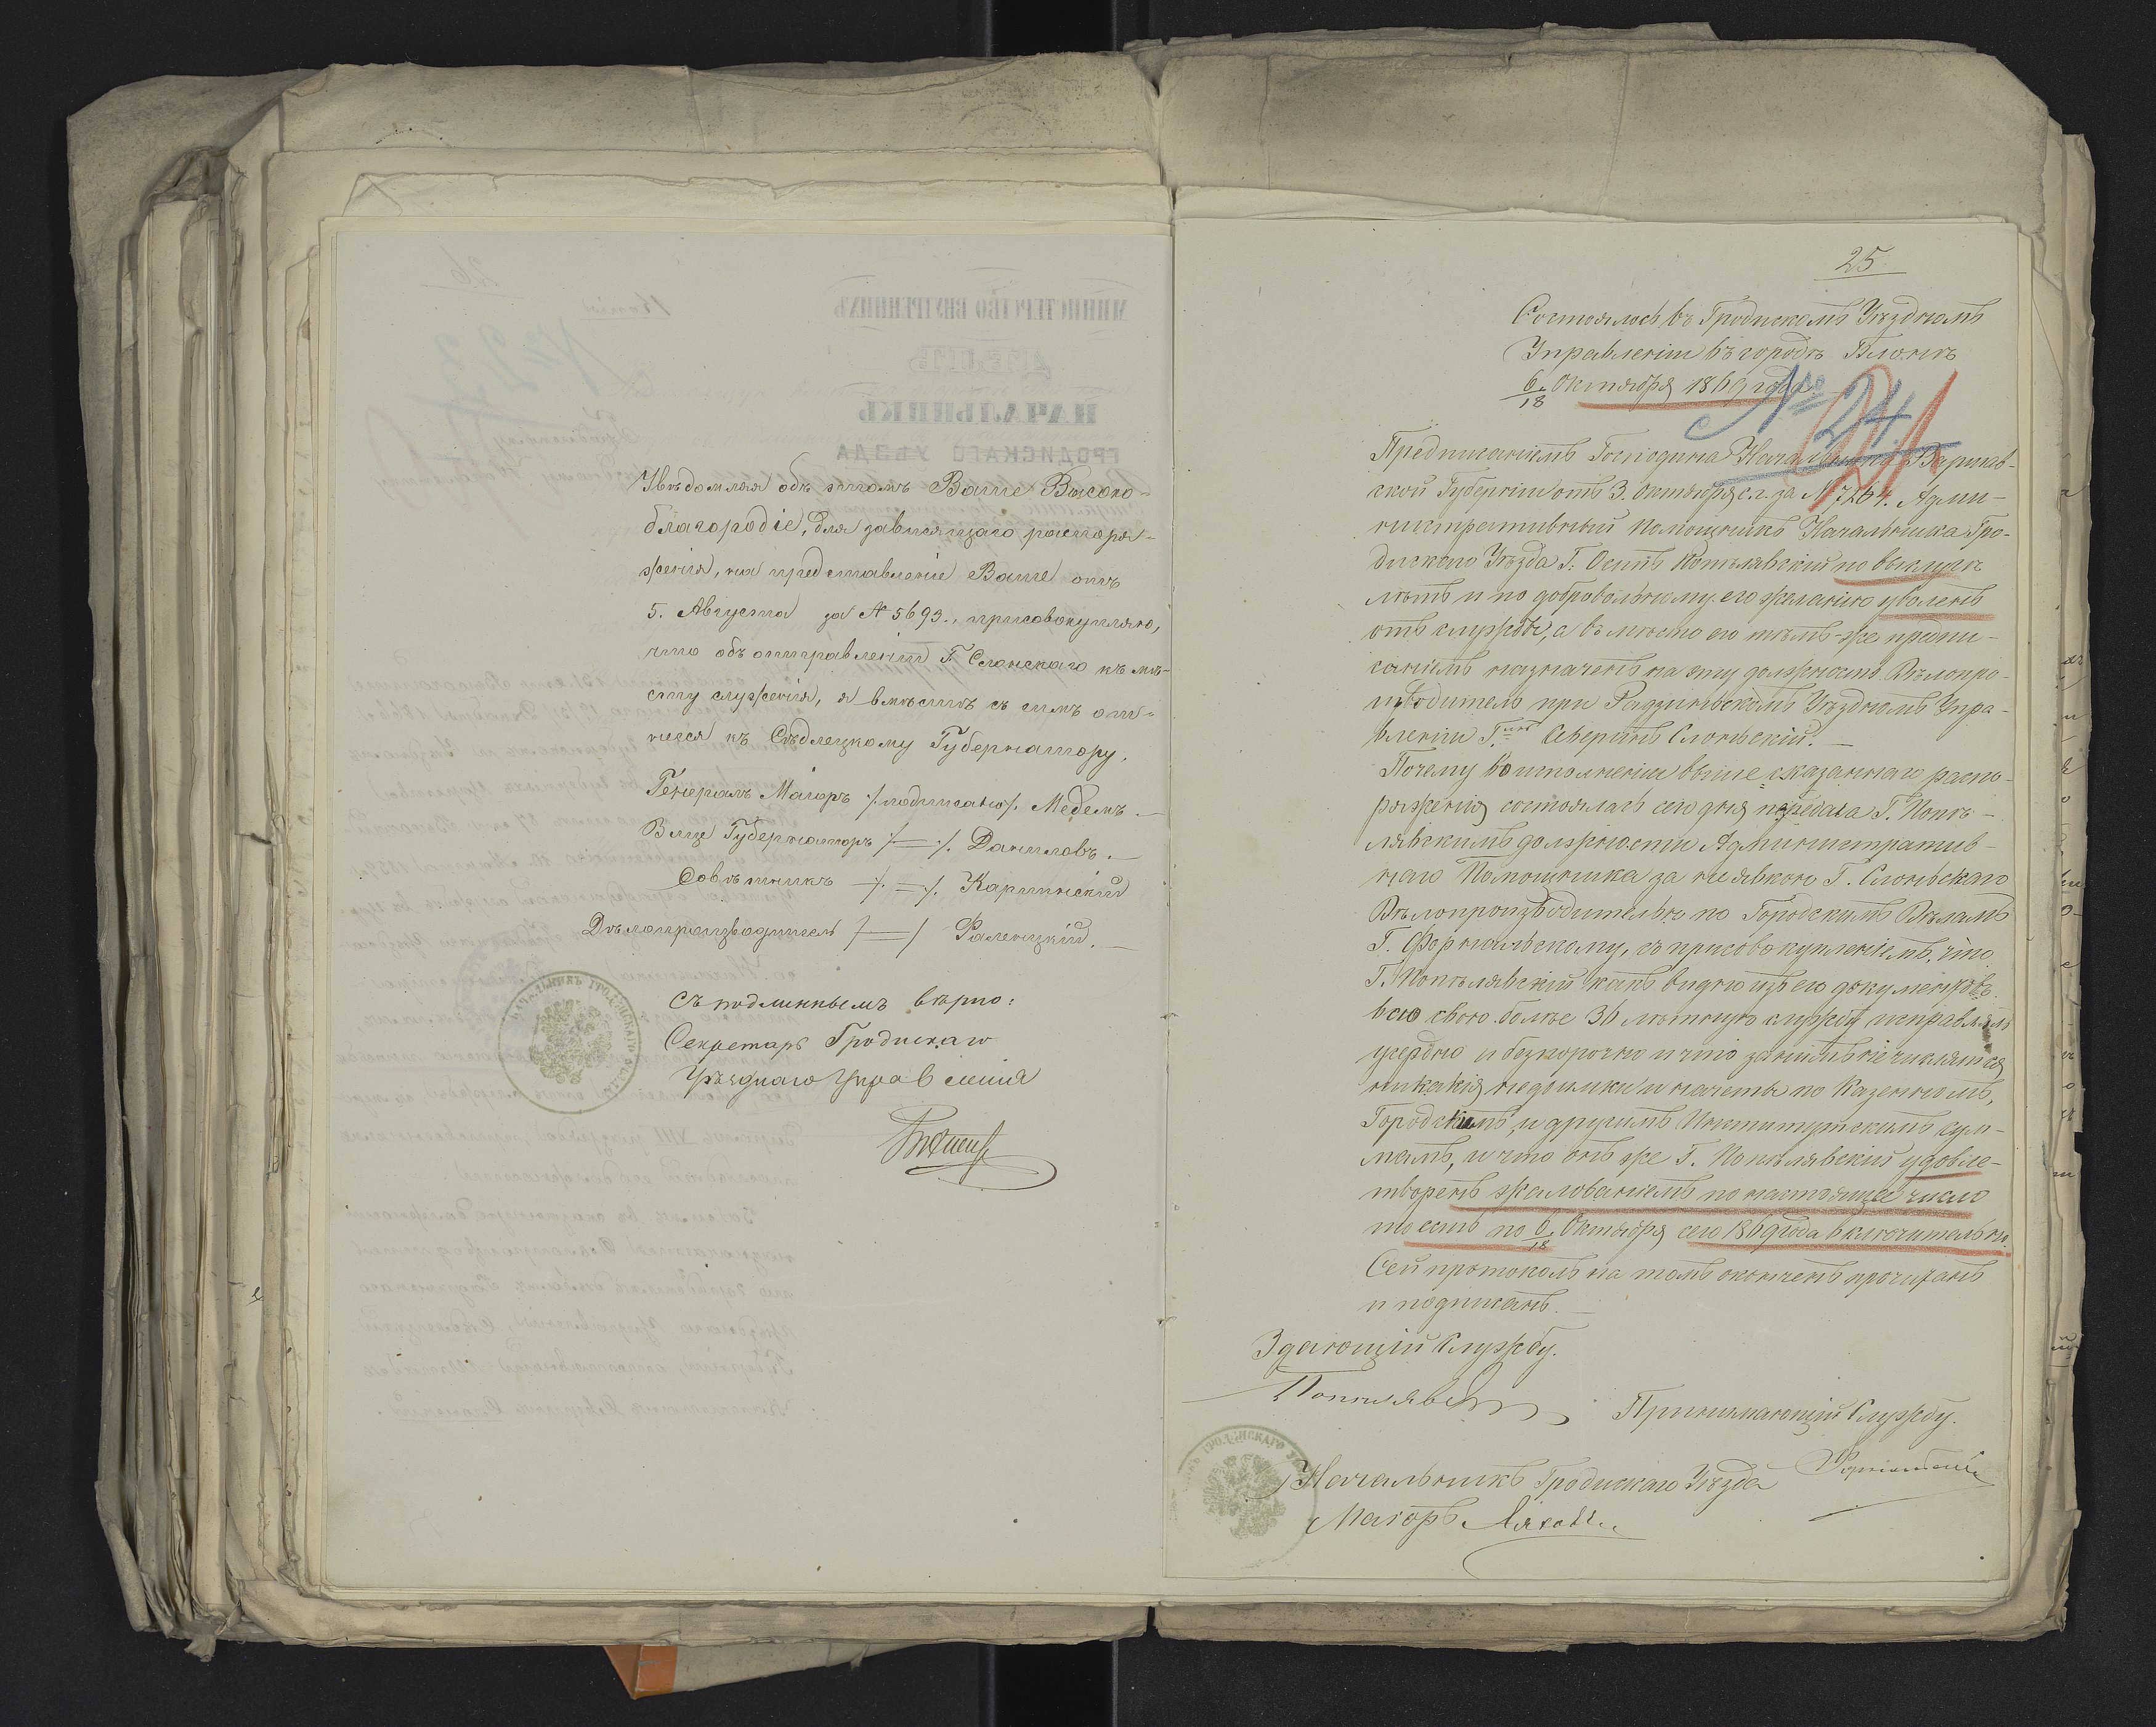 Увѣдомляя объ этомъ Ваше Высоко-
благородіе, для зависящаго распоря-
женія, на представленіе Ваше отъ
5. Августа за № 5693., присовокупляю,
что объ отправленіи Г. Слонскаго къ мѣ-
сту служенія, я вмѣстѣ съ симъ отн-
несся къ Сѣдлецкому Губернатору.
Генералъ Маіоръ /подписано/ Медемъ.
Вице Губернаторъ /=/ Даниловъ.
Совѣтникъ /=/ Карпинскій
Дѣлопроизводитель /=/ Фаленцкій.
Съ подлиннымъ вѣрно:
Секретарь Гродискаго
Уѣзднаго Управленія
НАЧАЛЬНИКЪ ГРОДИСКАГО УѢЗДА
25
Состоялось въ Гродискомъ Уѣздномъ
Управленіи въ городѣ Блоне
6/18 Октября 1869 года.
№ 24.
Предписаніемъ Господина Начальника Варшав-
ской Губерніи отъ 3. Октября с.г. за № 7264. Адми-
нистративный Помощникъ Начальника Гро-
дискаго Уѣзда Г. Осипъ Попѣлявскій по выслугѣ
лѣтъ и по добровольному его желанію уволенъ
отъ службы, а вмѣсто его тѣмъ-же предпи-
саніемъ назначенъ на эту должность Дѣлопро-
изводитель при Радзиньскомъ Уѣздномъ Упра-
вленіи Г.нъ Северинъ Слоньскій.
Почему во исполненіи выше сказаннаго распо-
ряженія состоялась сего дня передача Г. Попѣ-
лявскимъ должности Административ-
наго Помощника за неявкою Г. Слоньскаго
Дѣлопроизводителю по Городскимъ Дѣламъ
Г. , съ присовокупленіемъ, что
Г. Попѣлявскій какъ видно изъ его документовъ
всю свою более 36 лѣтнюю службу исправлялъ
усердно и безпорочно и что за нимъ нечислятся
никакія недоимки и начеты по Казеннымъ,
Городскимъ, и другимъ Институтскимъ сум-
мамъ, и что онъ же Г. Попѣлявскій удовле-
творенъ жалованіемъ по настоящее число
то есть по 6/18 Октября сего 1869 года включительно.
Сей протоколъ на томъ оконченъ прочитанъ
и подписанъ.
Здающій Службу.
Принимающій Службу.
Начальникъ Гродискаго Уѣзда
Маіоръ